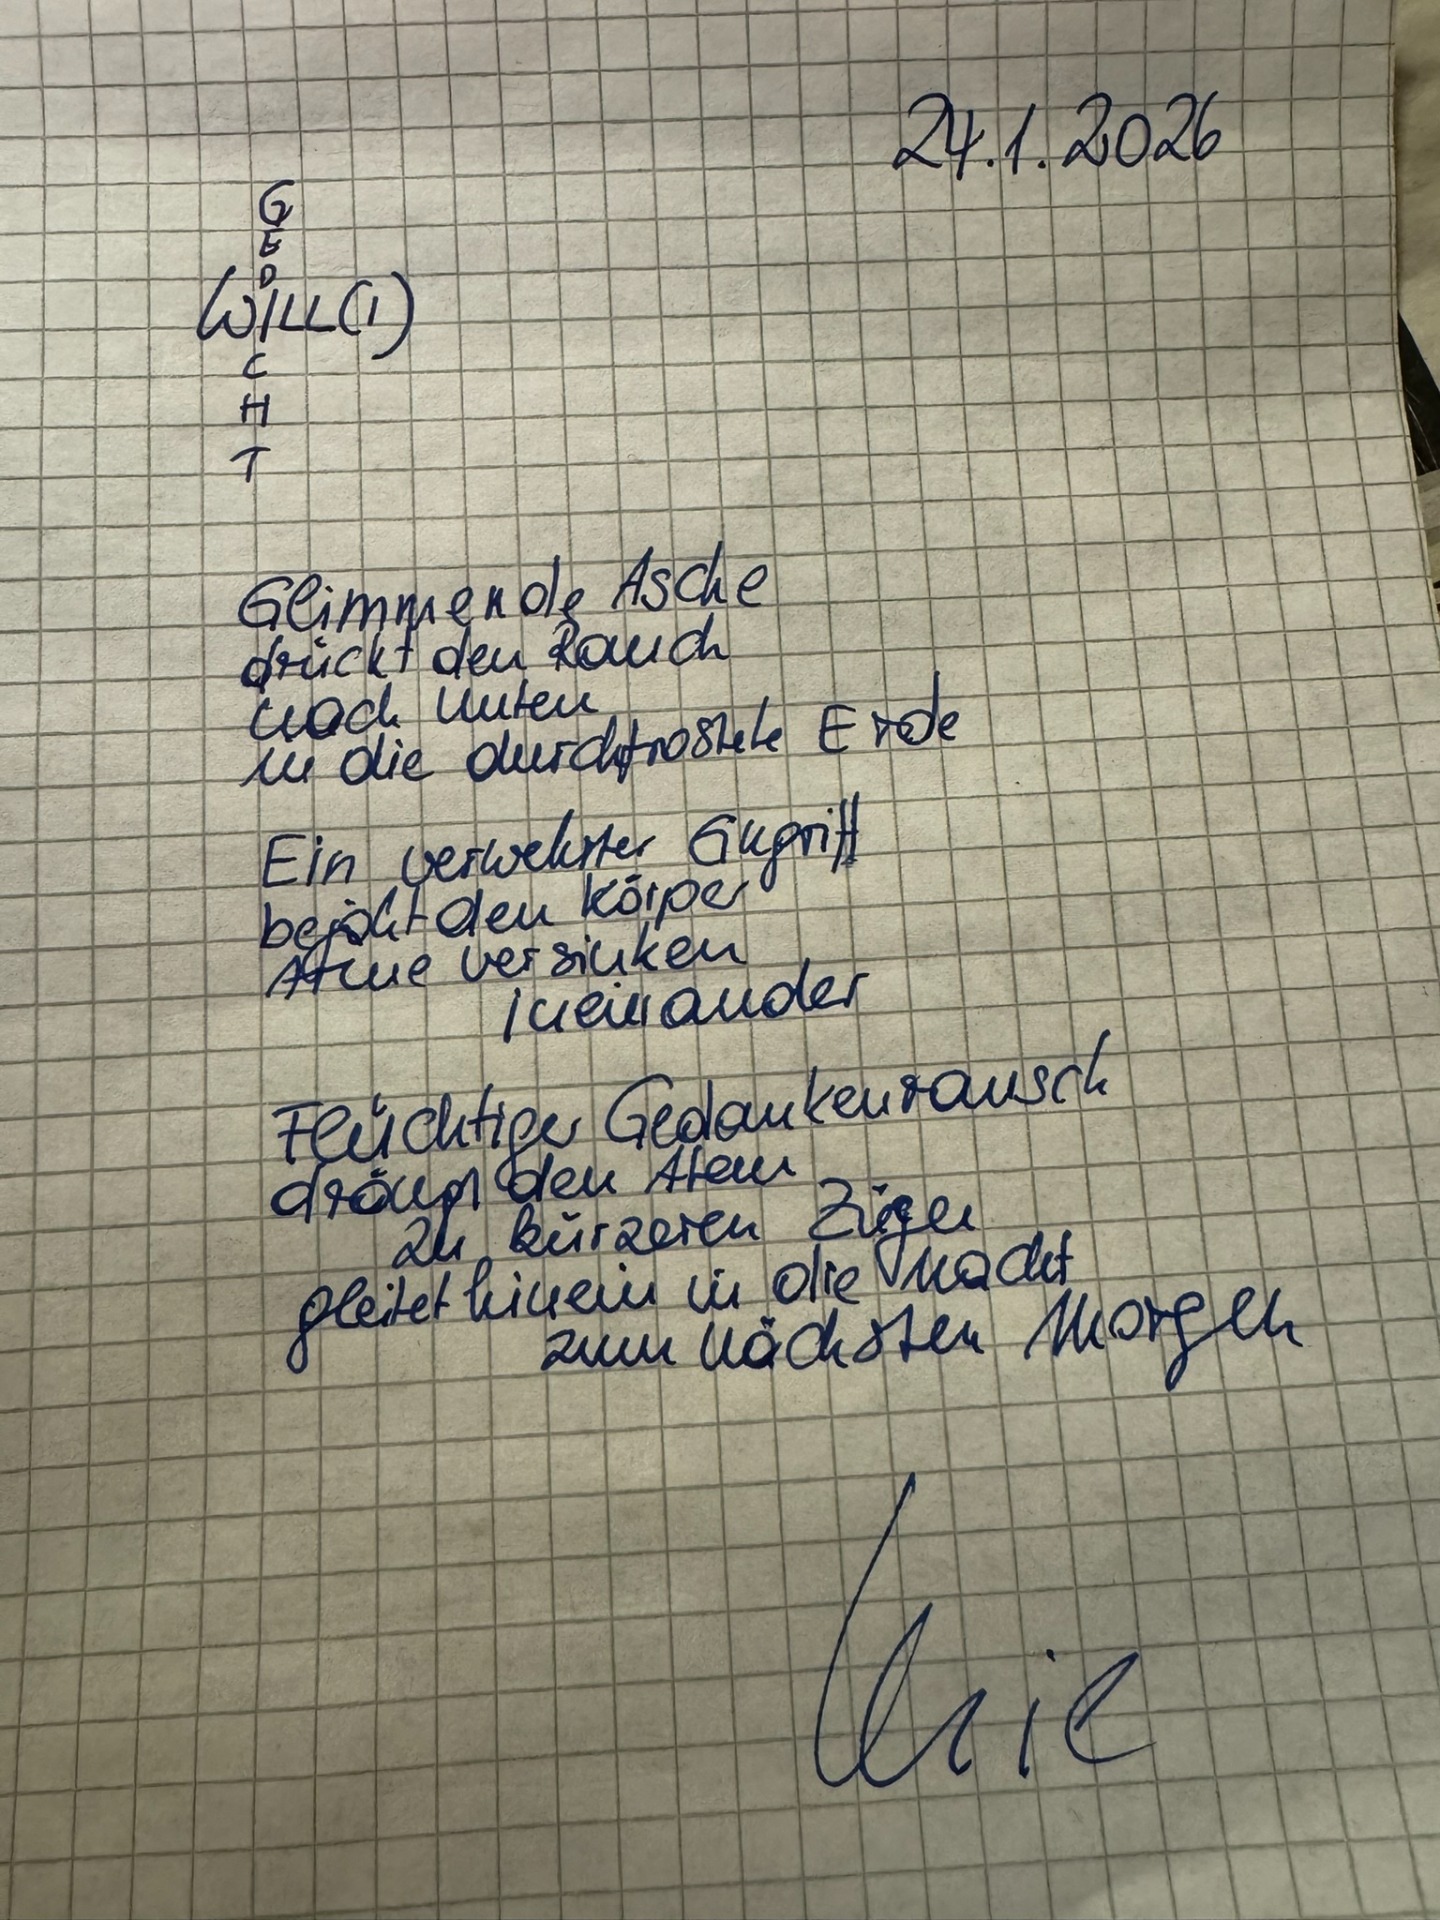 24.1.2026
G
E
D
WILL(I)
C
H
T
Glimmende Asche
drückt den Rauch
nach Unten
in die durchfrostete Erde
Ein verwehrter
bejaht den Körper
Arme versinken
ineinander
Flüchtiger Gedankenrausch
drängt den Atem
zu kürzeren Zügen
gleitet hinein in die Nacht
zum nächsten Morgen